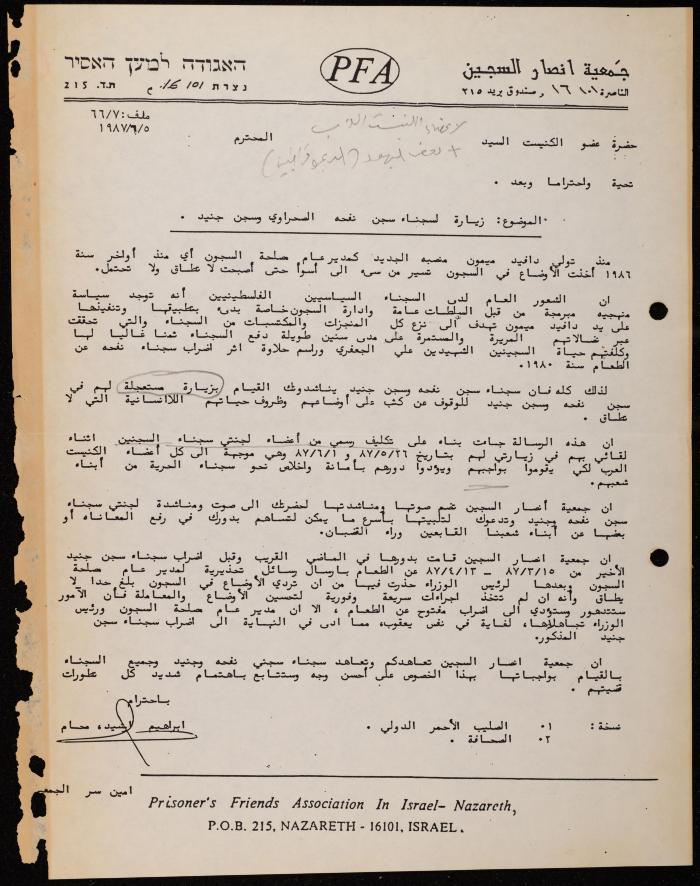 האגודה למען האסיר
PFA
جمعية انصار السجين
נצרת 16101 ת.ד. 215
الناصرة ١٦١٠١، صندوق بريد ٢١٥
ملف: ٦٦/٧
١٩٨٧/٦/٥
حضرة عضو الكنيست السيد المحترم
تحية واحتراما وبعد .
الموضوع: زيارة لسجناء سجن نفحه الصحراوي وسجن جنيد .
منذ تولي دافيد ميمون منصبه الجديد كمدير عام مصلحة السجون أي منذ أواخر سنة
١٩٨٦ أخذت الأوضاع في السجون تسير من سيء الى أسوأ حتى أصبحت لا تطاق ولا تحتمل.
ان الشعور العام لدى السجناء السياسيين الفلسطينيين أنه توجد سياسة
منهجيه مبرمجة من قبل السلطات عامة وادارة السجون خاصة بدىء بتطبيقها وتنفيذها
على يد دافيد ميمون تهدف الى نزع كل المنجزات والمكتسبات من السجناء والتي تحققت
عبر نضالاتهم المريرة والمستمرة على مدى سنين طويلة دفع السجناء ثمنا غاليا لها
وكلفتهم حياة السجينين الشهيدين علي الجعفري وراسم حلاوة اثر اضراب سجناء نفحه عن
الطعام سنة ١٩٨٠.
لذلك كله فان سجناء سجن نفحه وسجن جنيد يناشدونك القيام بزيارة مستعجلة لهم في
سجن نفحه وسجن جنيد للوقوف عن كثب على أوضاعهم وظروف حياتهم اللاانسانية التي لا
تطاق .
ان هذه الرسالة جاءت بناء على تكليف رسمي من أعضاء لجنتي سجناء السجنين اثناء
لقائي بهم في زيارتي لهم بتاريخ ٨٧/٥/٢٦ و ٨٧/٦/١ وهي موجهة الى كل أعضاء الكنيست
العرب لكي يقوموا بواجبهم ويؤدوا دورهم بأمانة واخلاص نحو سجناء الحرية من أبناء
شعبهم.
ان جمعية أنصار السجين تضم صوتها ومناشدتها لحضرتك الى صوت ومناشدة لجنتي سجناء
سجن نفحه وجنيد وتدعوك لتلبيتها بأسرع ما يمكن لتساهم بدورك في رفع المعاناه أو
بعضها عن أبناء شعبنا القابعين وراء القضبان.
ان جمعية انصار السجين قامت بدورها في الماضي القريب وقبل اضراب سجناء سجن جنيد
الأخير من ٨٧/٣/١٥ – ٨٧/٤/١٣ عن الطعام بارسال رسائل تحذيرية لمدير عام مصلحة
السجون وبعدها لرئيس الوزراء حذرت فيها من ان تردي الأوضاع في السجون بلغ حدا لا
يطاق وأنه ان لم تتخذ اجراءات سريعة وفورية لتحسين الأوضاع والمعاملة فان الأمور
ستتدهور وستؤدي الى اضراب مفتوح عن الطعام ، الا ان مدير عام مصلحة السجون ورئيس
الوزراء تجاهلاها، لغاية في نفس يعقوب، مما ادى في النهاية الى اضراب سجناء سجن
جنيد المذكور.
ان جمعية انصار السجين تعاهدكم وتعاهد سجناء سجني نفحه وجنيد وجميع السجناء
بالقيام بواجباتها بهذا الخصوص على أحسن وجه وستتابع باهتمام شديد كل تطورات
قضيتهم .
باحترام
نسخة: ١. الصليب الأحمر الدولي . ابراهيم السيد، محام
٢. الصحافة .
امين سر الجمع
Prisoner's Friends Association In Israel- Nazareth,
P.O.B. 215, NAZARETH - 16101, ISRAEL.